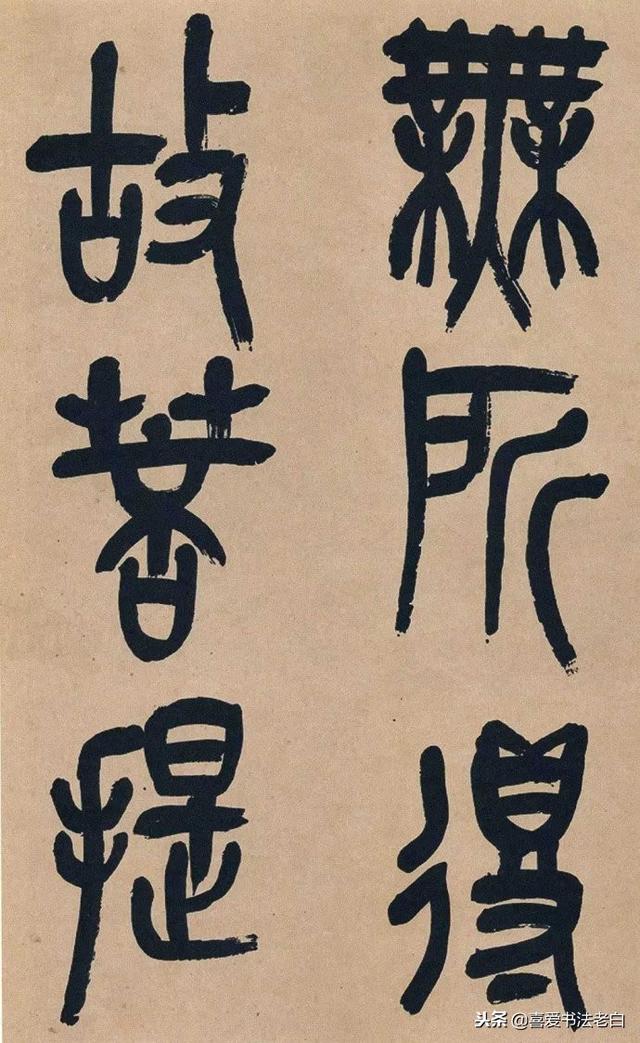 無所得
故菩提
头条 @喜爱书法老白